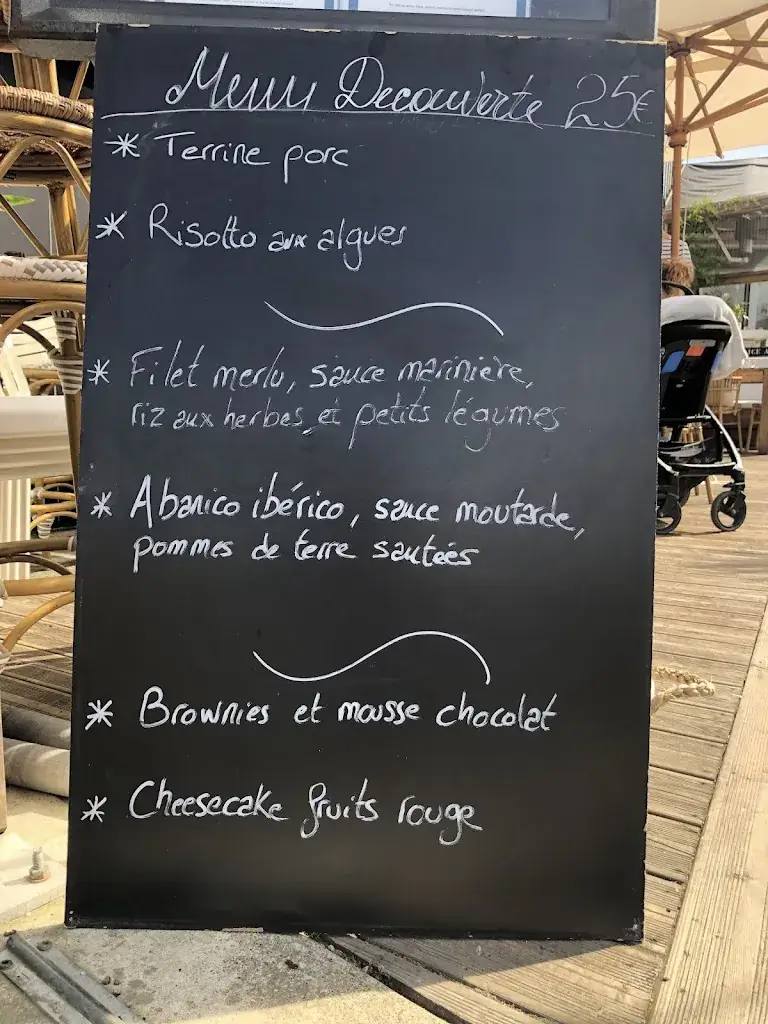 Menu Decouverte 25€
* Terrine porc
* Risotto aux algues
* Filet merlu, sauce marinière,
riz aux herbes et petits légumes
* Abanico ibérico, sauce moutarde,
pommes de terre sautées
* Brownies et mousse chocolat
* Cheesecake fruits rouge